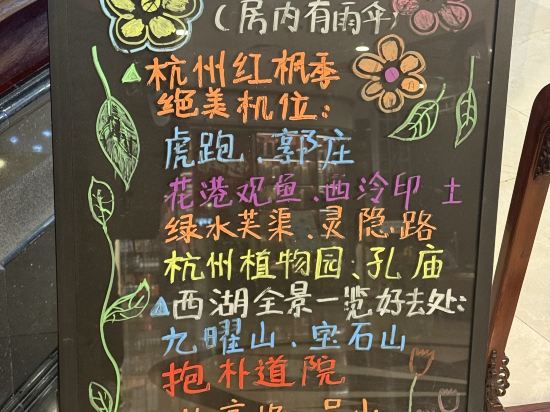 （房内有雨伞）
杭州红枫季
绝美机位：
虎跑、郭庄
花港观鱼、西泠印土
绿水芙渠、灵隐路
杭州植物园、孔庙
西湖全景一览好去处：
九曜山、宝石山
抱朴道院